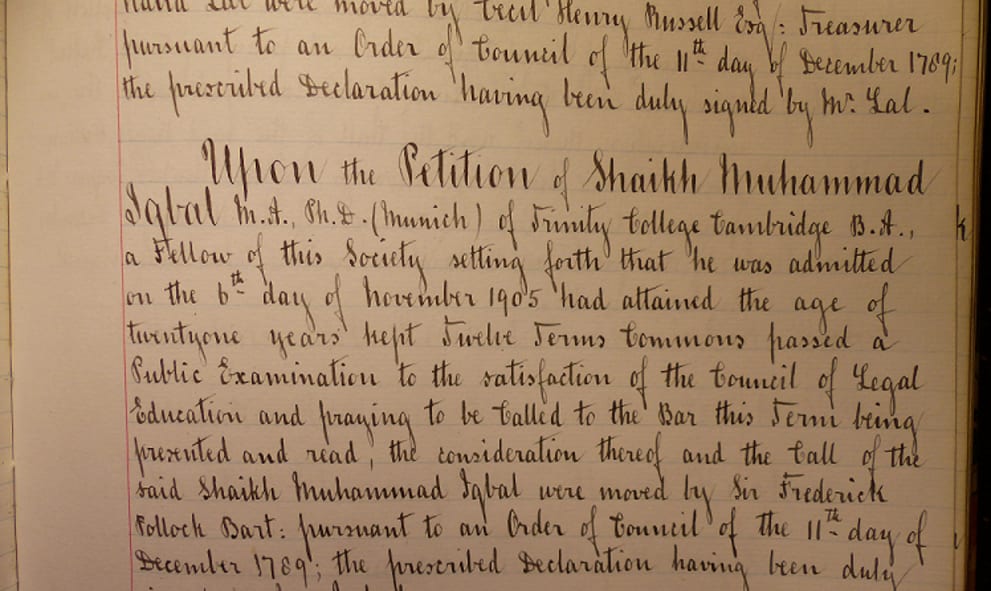 Lal were moved by Cecil Henry Russell Esq: Treasurer
pursuant to an Order of Council of the 11th day of December 1789;
the prescribed Declaration having been duly signed by Mr. Lal.
Upon the Petition of Shaikh Muhammad
Iqbal M.A., Ph.D. (Munich) of Trinity College Cambridge B.A.,
a Fellow of this Society setting forth that he was admitted
on the 6th day of November 1905 had attained the age of
twentyone years kept Twelve Terms Commons passed a
Public Examination to the satisfaction of the Council of Legal
Education and praying to be Called to the Bar this Term being
presented and read, the consideration thereof and the Call of the
said Shaikh Muhammad Iqbal were moved by Sir Frederick
Pollock Bart: pursuant to an Order of Council of the 11th day of
December 1789; the prescribed Declaration having been duly